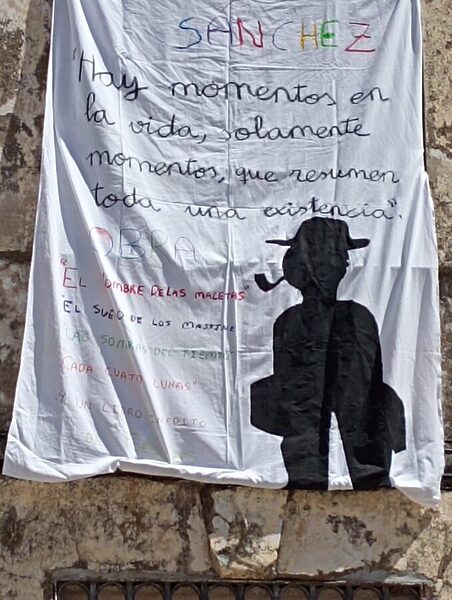 SANCHEZ
"Hay momentos en
la vida, solamente
momentos, que resumen
toda una existencia".
OBRA
"EL OMBRE DE LAS MALETAS"
"EL SUEÑO DE LOS MASTINE
LAS SOMBRAS DEL TIEMPO"
CADA CUATO LUNAS"
Y UN LIBRO INEDITO
DE